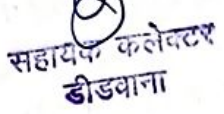 सहायक कलेक्टर
डीडवाना